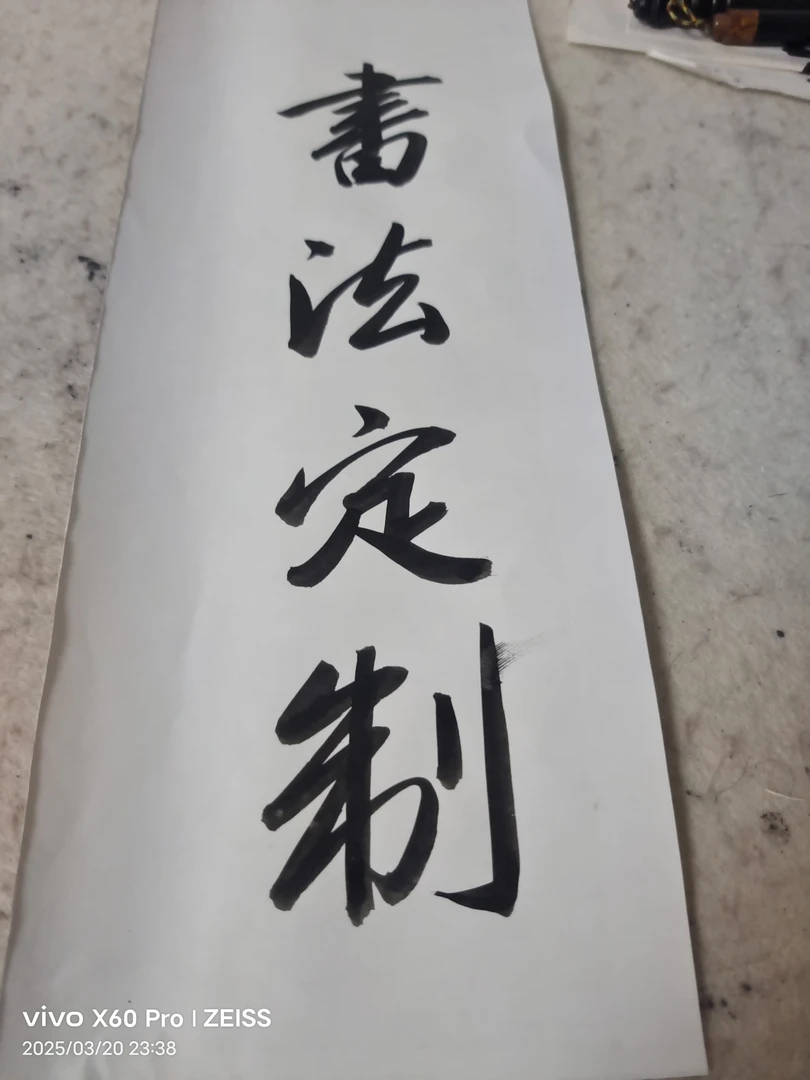 書法定制
vivo X60 Pro | ZEISS
2025/03/20 23:38